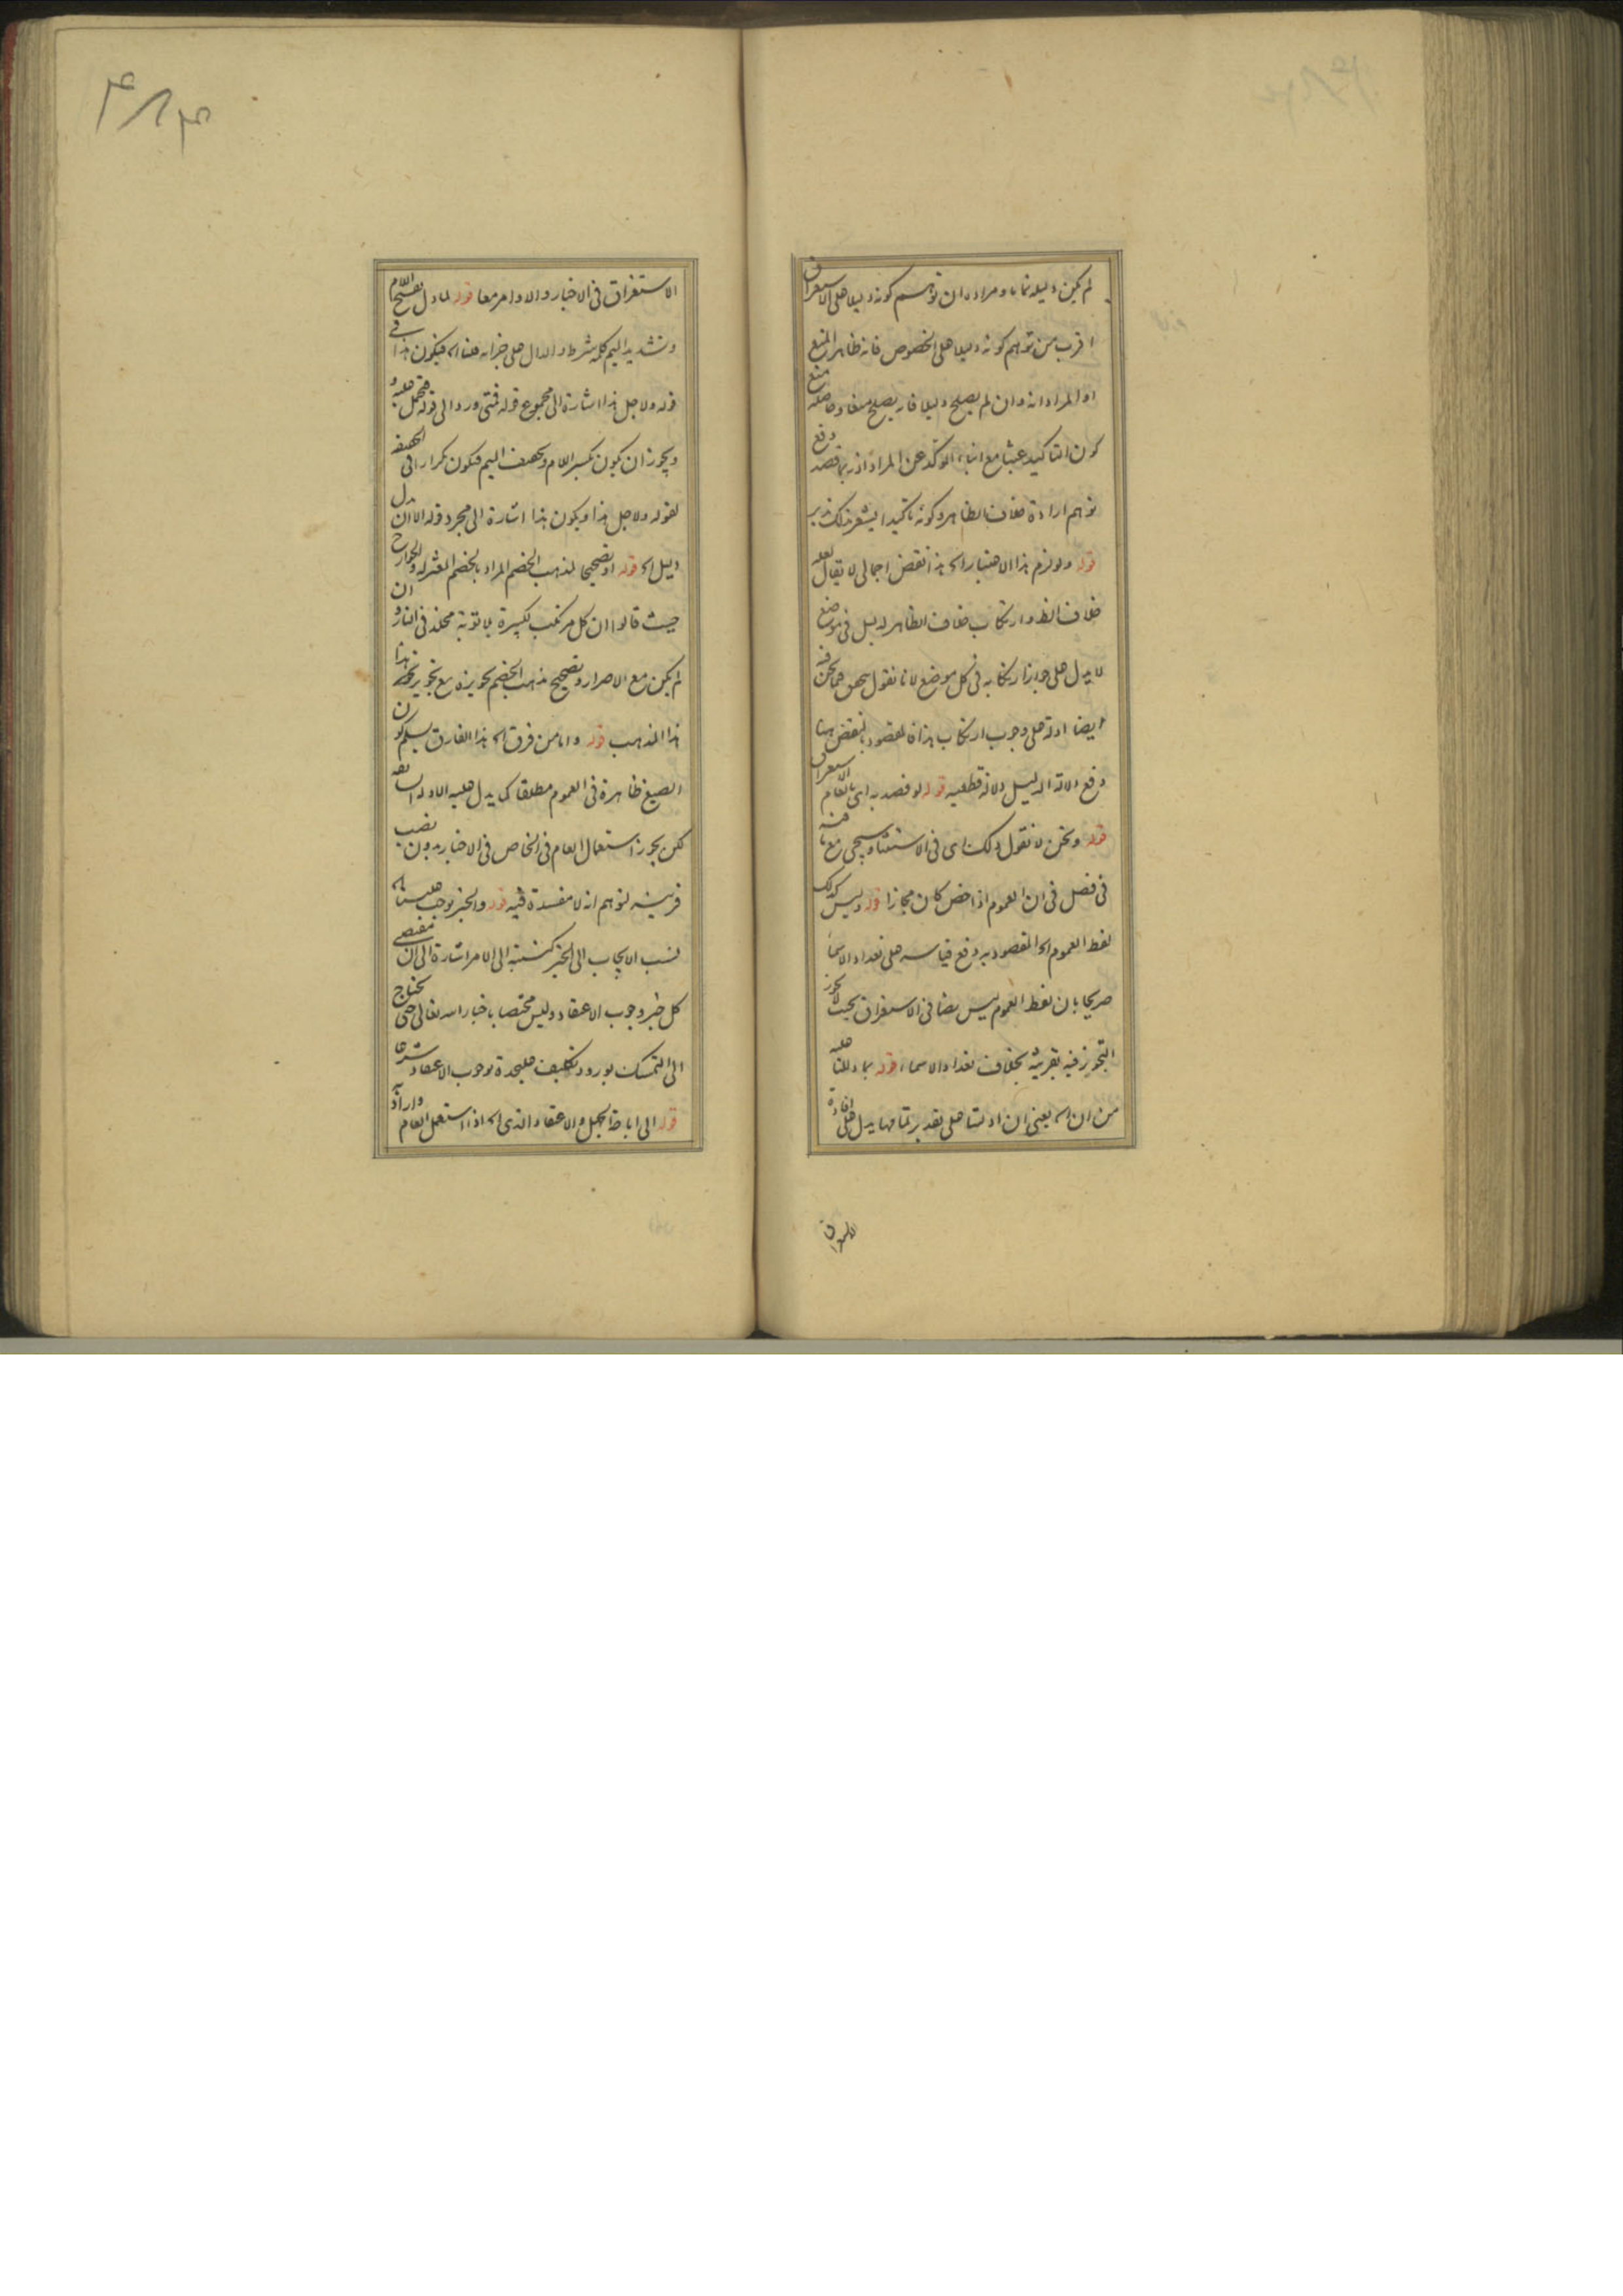 لم يكن دليله تماما ومراده ان توهم كونه دليلا على الاستغراق
اقرب من توهم كونه دليلا على الخصوص فانه ظاهر المنع
او المراد انه وان لم يصلح دليلا فانه يصلح منعا وحاصله منع
كون التاكيد عبثا مع انباء المؤكد عن المراد اذ ربما قصد دفع
توهم ارادة خلاف الظاهر وكونه تاكيدا يشعر بذلك
قوله ولو لزم هذا الاعتبار الخ هذا نقض اجمالى لا يقال لعله
خلاف الظ وارتكاب خلاف الظاهر لدليل فى موضع
لا يدل على جواز ارتكابه فى كل موضع لانا نقول نحن فيه
ايضا ادلة على وجوب ارتكاب هذا فالمقصود بالنقض هنا
دفع دلالة الدليل دلالة قطعية قوله لو قصد به اى بالعام الاستغراق
قوله ونحن لا نقول ذلك اى فى الاستثناء وسيجى مع ما فيه
فى فصل فى ان العموم اذا خص كان مجازا قوله وليس كذلك
لفظ العموم الخ المقصود به دفع قياسه على تعداد الاسماء
صريحا بان لفظ العموم ليس نصا فى الاستغراق بحيث لا يجوز
التجوز فيه بقرينة بخلاف تعداد الاسماء قوله بما دللنا عليه
من ان الخ يعنى ان ادلتنا على تقدير تمامها يدل على افادة
الاستغراق
الاستغراق فى الاخبار والاوامر معا قوله لما دل بفتح اللام
وتشديد الميم كلمة شرط والدال على جزائه هناك فيكون هذا فى
قوله ولاجل هذا اشارة الى مجموع قوله فمتى ورد الى قوله فتحمل عليه و
ويجوز ان يكون بكسر اللام وتخفيف الميم فيكون تكرارا فى
لقوله ولاجل هذا ويكون هذا اشارة الى مجرد قوله الا ان دل
دليل الخ قوله او تصحيحا لمذهب الخصم المراد بالخصم المعتزلة والخوارج
حيث قالوا ان كل مرتكب لكبيرة بلا توبة مخلد فى النار ان
لم يكن مع الاصرار وتصحيح مذهب الخصم تجويزه مع تجويز
هذا المذهب قوله واما من فرق الخ هذا الفارق يسلم كون
الصيغ ظاهرة فى العموم مطلقا كما يدل عليه الادلة السابقة
لكن يجوز استعمال العام فى الخاص فى الاخبار بدون نصب
قرينة لتوهم انه لا مفسدة فيه قوله والخبر يوجب علينا
نسب الايجاب الى الخبر كنسبته الى الامر اشارة الى ان مقتضى
كل خبر وجوب الاعتقاد وليس مختصا باخبار الله تعالى حتى يحتاج
الى التمسك بورود تكليف عليحدة بوجوب الاعتقاد شرعا
قوله الى اباحة الجهل والاعتقاد الذى الخ اذا استعمل العام وارادته